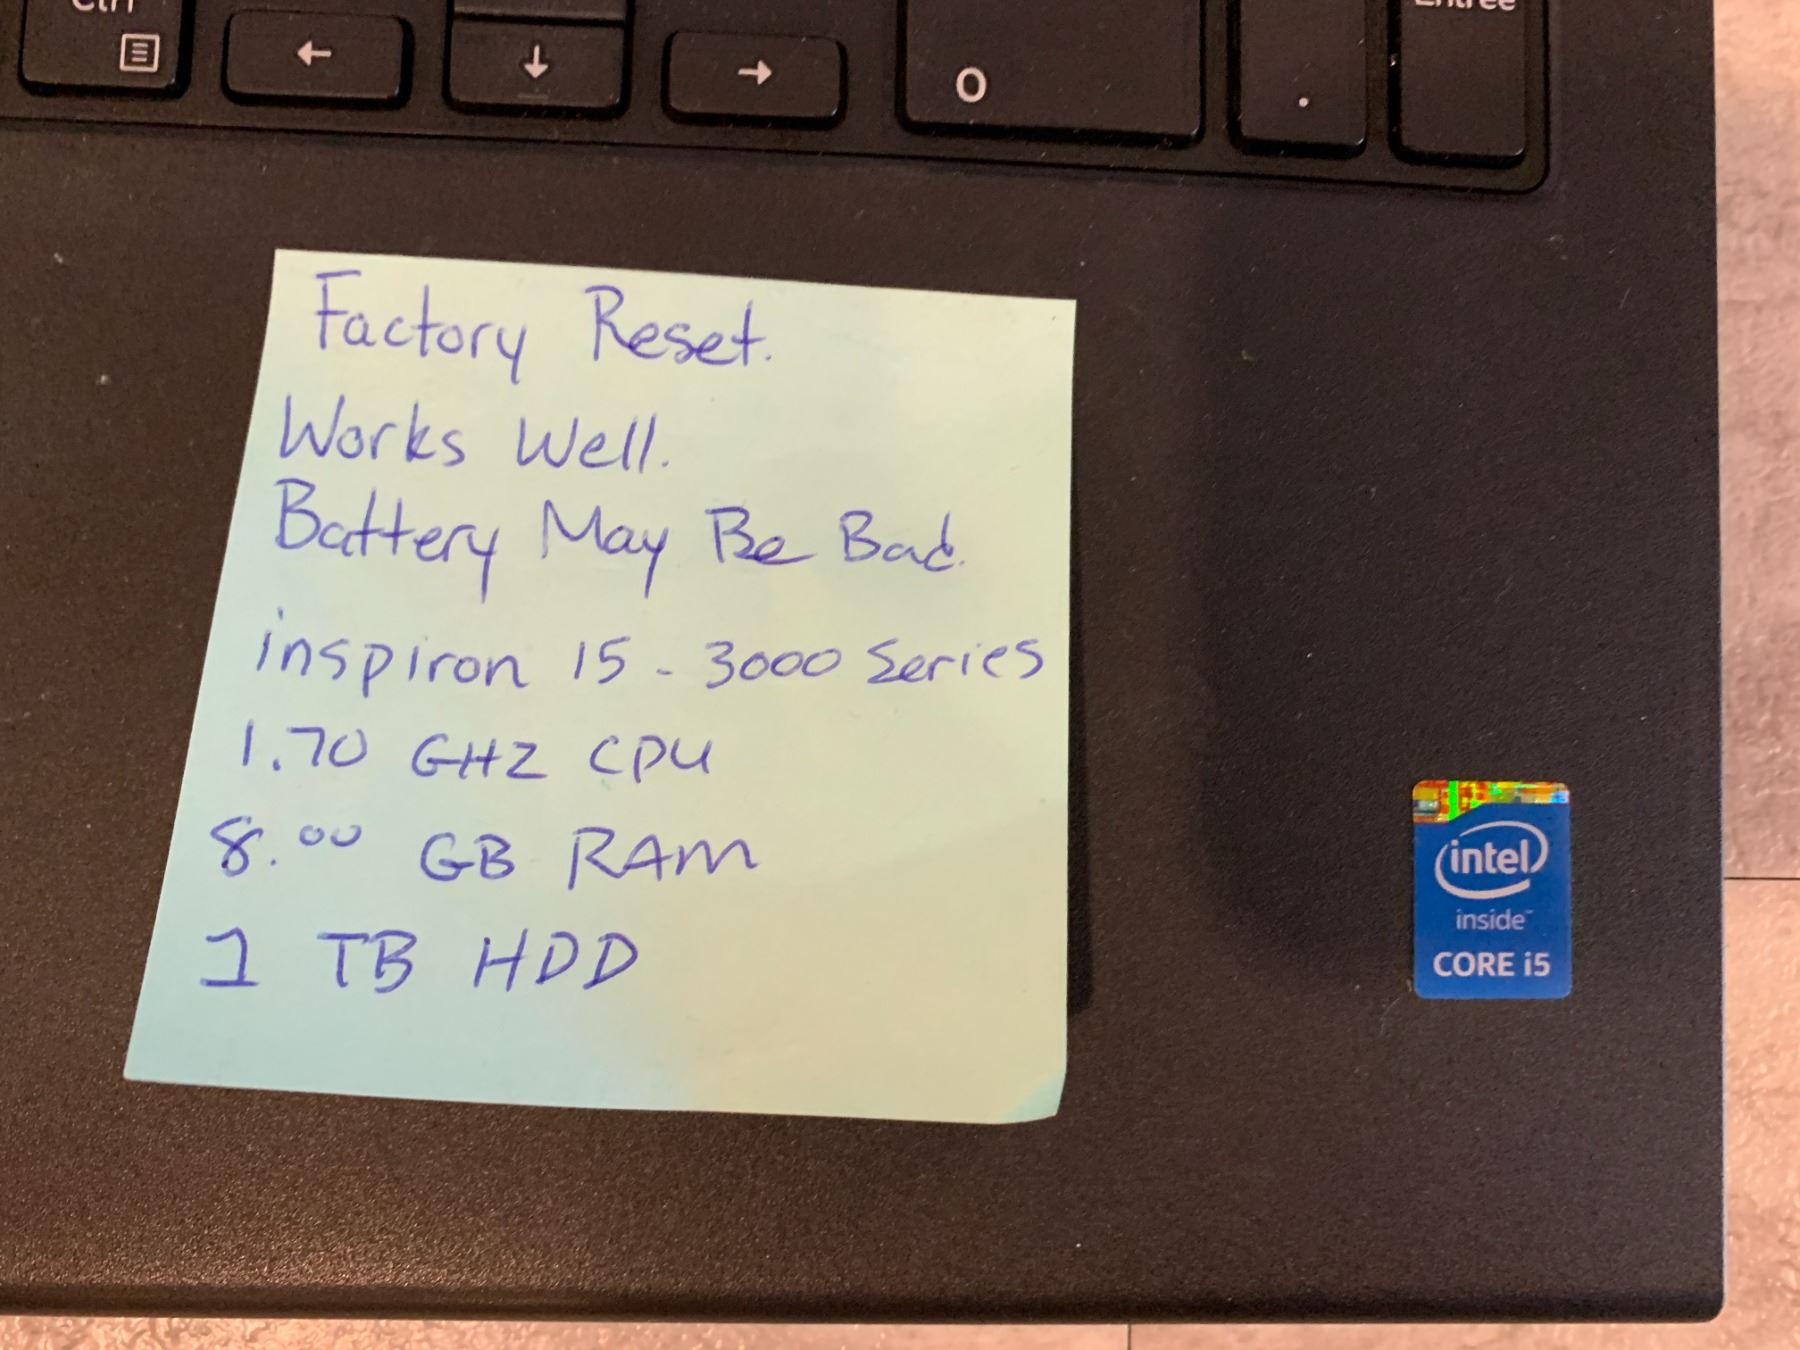 Ctrl
0
.
Entrée
Factory Reset.
Works Well.
Battery May Be Bad.
inspiron 15 - 3000 Series
1.70 GHZ CPU
8.00 GB RAM
1 TB HDD
intel
inside™
CORE i5